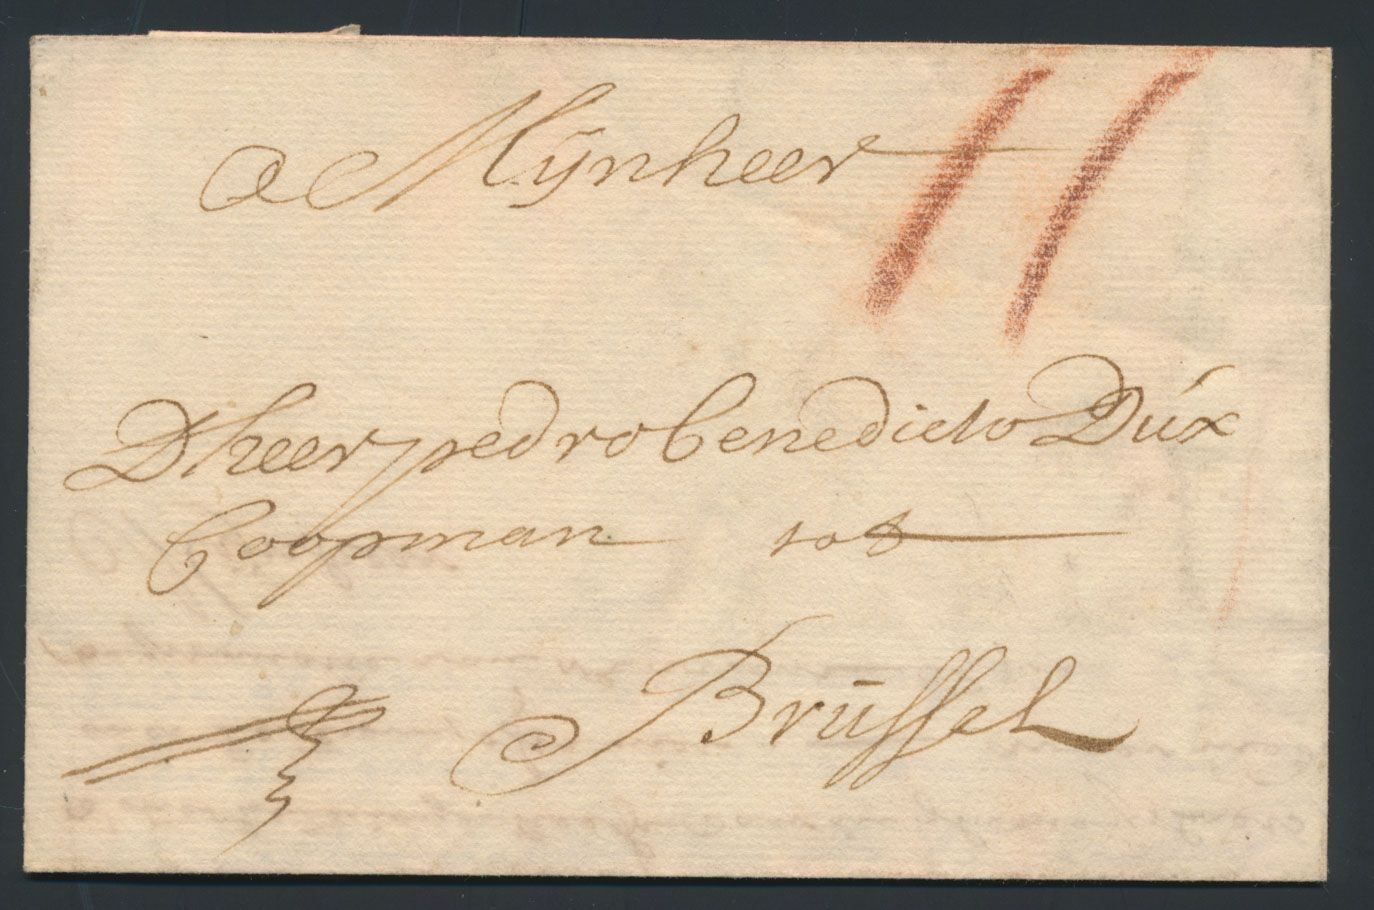 a Mÿnheer
Dheer pedro benedicto Dúx
Coopman tot
Brüssel